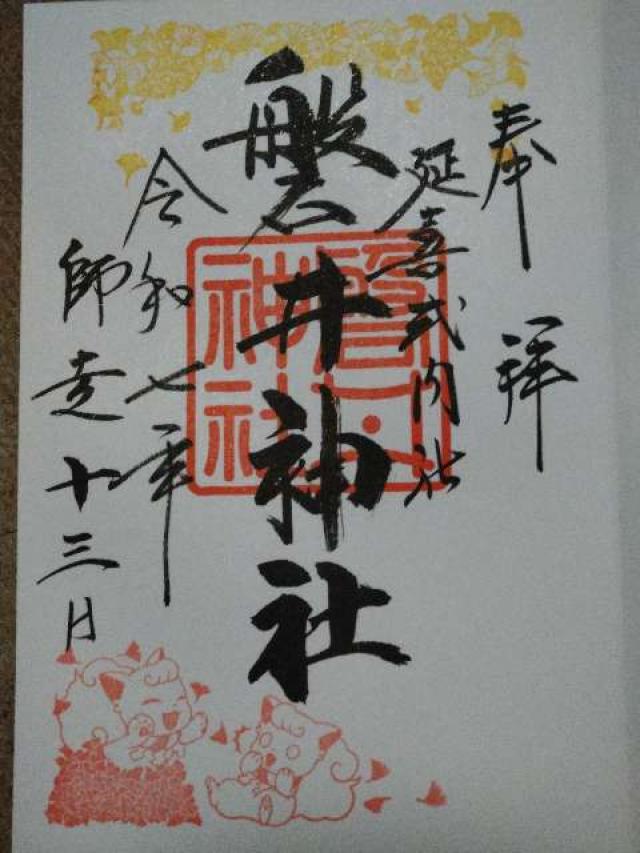 奉拝
延喜式内社
磐井神社
磐井神社
令和七年
師走十三日